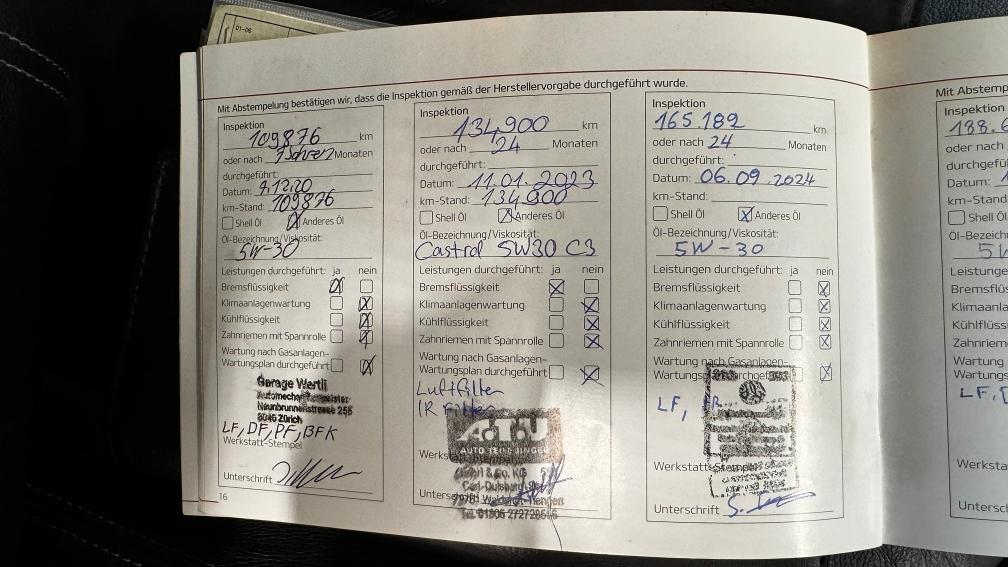 01-06
Mit Abstempelung bestätigen wir, dass die Inspektion gemäß der Herstellervorgabe durchgeführt wurde.
Inspektion
109876 km
oder nach Monaten
durchgeführt:
Datum: 9.12.20
km-Stand: 109876
Shell Öl Anderes Öl
Öl-Bezeichnung/Viskosität:
5W-30
Leistungen durchgeführt: ja nein
Bremsflüssigkeit
Klimaanlagenwartung
Kühlflüssigkeit
Zahnriemen mit Spannrolle
Wartung nach Gasanlagen-
Wartungsplan durchgeführt
Garage Wertli
Neunbrunnenstrasse 255
8046 Zürich
LF, DF, PF, BFK
Werkstatt-Stempel
Unterschrift
16
Inspektion
134.900 km
oder nach 24 Monaten
durchgeführt:
Datum: 11.01.2023
km-Stand: 134.900
Shell Öl Anderes Öl
Öl-Bezeichnung/Viskosität:
Castrol 5W30 C3
Leistungen durchgeführt: ja nein
Bremsflüssigkeit
Klimaanlagenwartung
Kühlflüssigkeit
Zahnriemen mit Spannrolle
Wartung nach Gasanlagen-
Wartungsplan durchgeführt
Luftfilter
IR Filter
A.T.U
Inspektion
165.182 km
oder nach 24 Monaten
durchgeführt:
Datum: 06.09.2024
km-Stand:
Shell Öl Anderes Öl
Öl-Bezeichnung/Viskosität:
5W-30
Leistungen durchgeführt: ja nein
Bremsflüssigkeit
Klimaanlagenwartung
Kühlflüssigkeit
Zahnriemen mit Spannrolle
Wartung nach Gasanlagen-
LF,
Werkstatt-Stempel
Unterschrift
Mit Abstemp
Inspektion
188.6
oder nach
durchgefü
Datum: 1
km-Stand:
Shell Öl
Öl-Bezeichn
5W
Leistunge
Bremsflüs
Klimaanla
Kühlflüssi
Zahnriem
Wartung
Wartungs
LF,
Werksta
Untersc